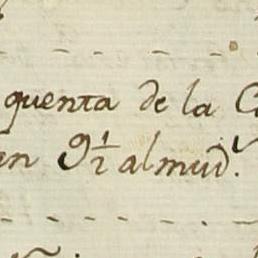 quenta de la
9½ almud.